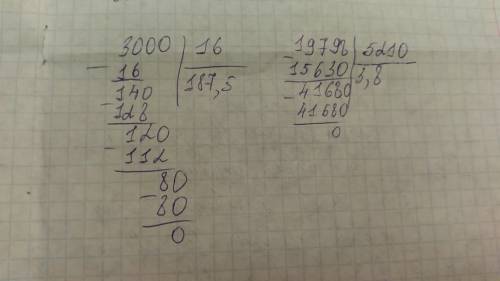 3000 | 16
- 16 | 187,5
140
- 128
120
- 112
80
- 80
0
- 19798 | 5210
15630 | 3,8
- 41680
41680
0